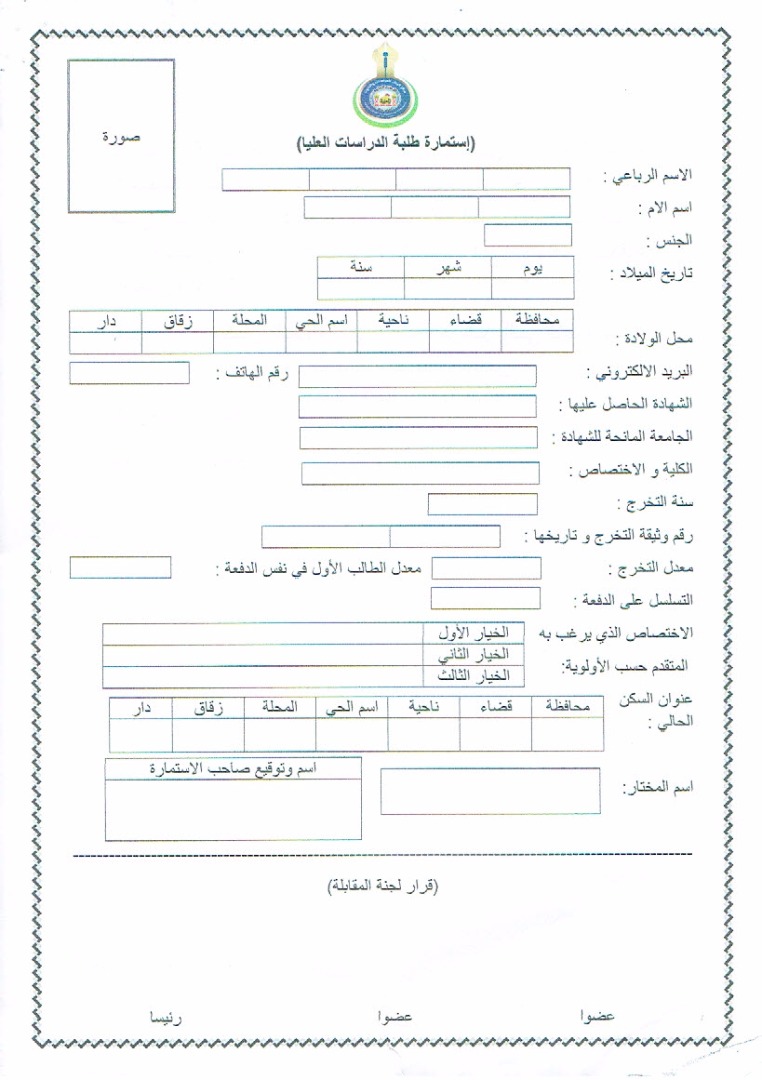 صورة
(إستمارة طلبة الدراسات العليا)
الاسم الرباعي :
اسم الام :
الجنس :
تاريخ الميلاد :
يوم شهر سنة
محل الولادة :
محافظة قضاء ناحية اسم الحي المحلة زقاق دار
البريد الالكتروني : رقم الهاتف :
الشهادة الحاصل عليها :
الجامعة المانحة للشهادة :
الكلية و الاختصاص :
سنة التخرج :
رقم وثيقة التخرج و تاريخها :
معدل التخرج : معدل الطالب الأول في نفس الدفعة :
التسلسل على الدفعة :
الاختصاص الذي يرغب به
المتقدم حسب الأولوية:
الخيار الأول
الخيار الثاني
الخيار الثالث
عنوان السكن
الحالي :
محافظة قضاء ناحية اسم الحي المحلة زقاق دار
اسم المختار:
اسم وتوقيع صاحب الاستمارة
(قرار لجنة المقابلة)
عضوا عضوا رئيسا